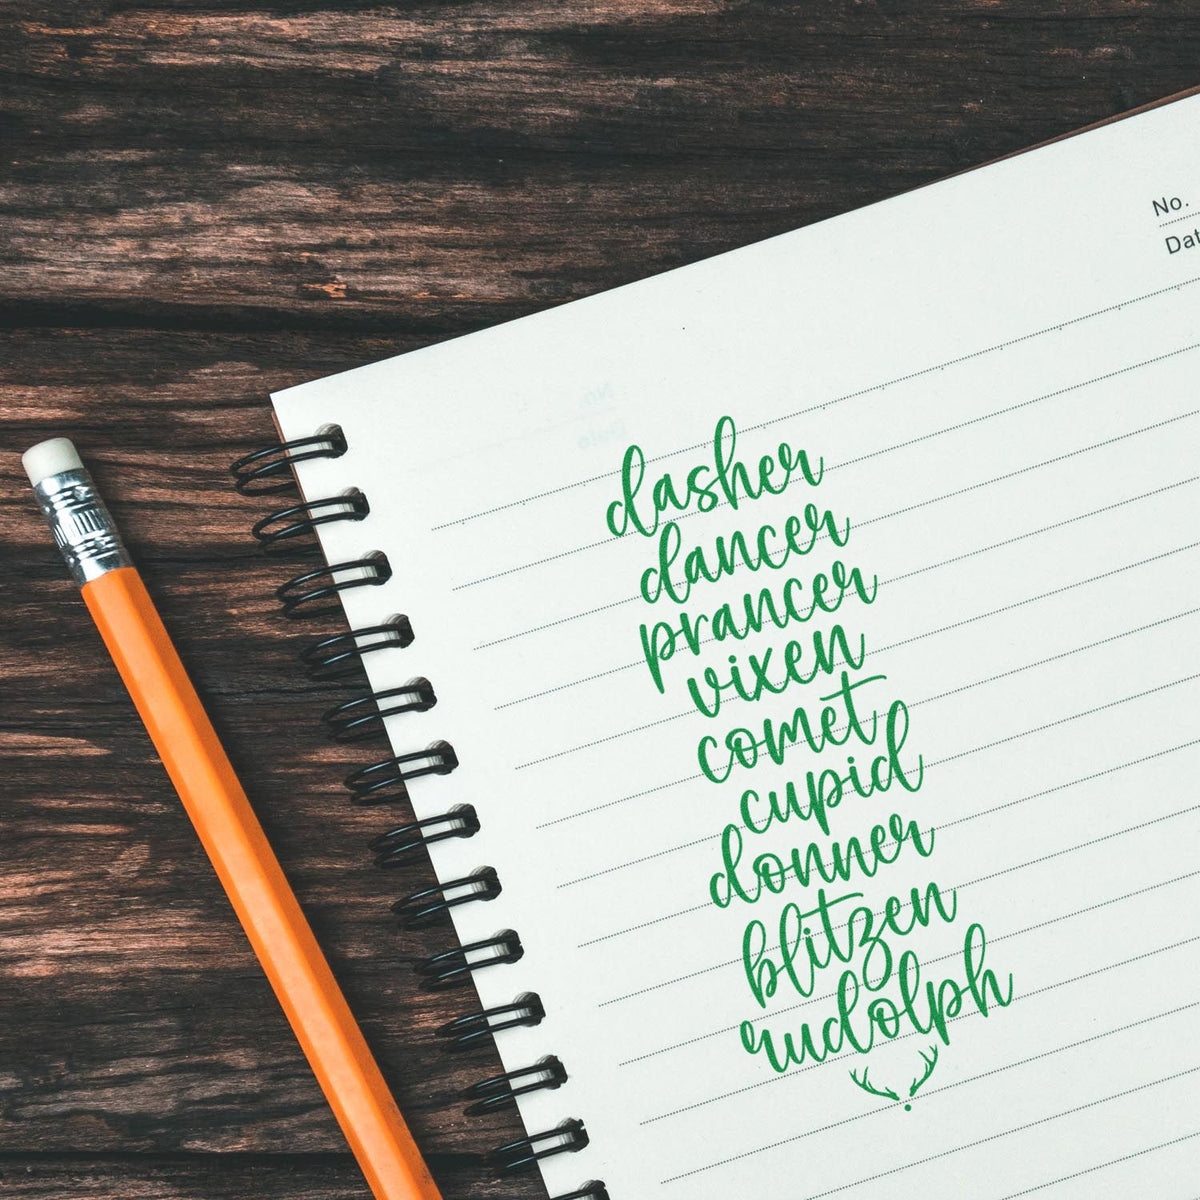 No.
Dat
dasher
dancer
prancer
vixen
comet
cupid
donner
blitzen
rudolph